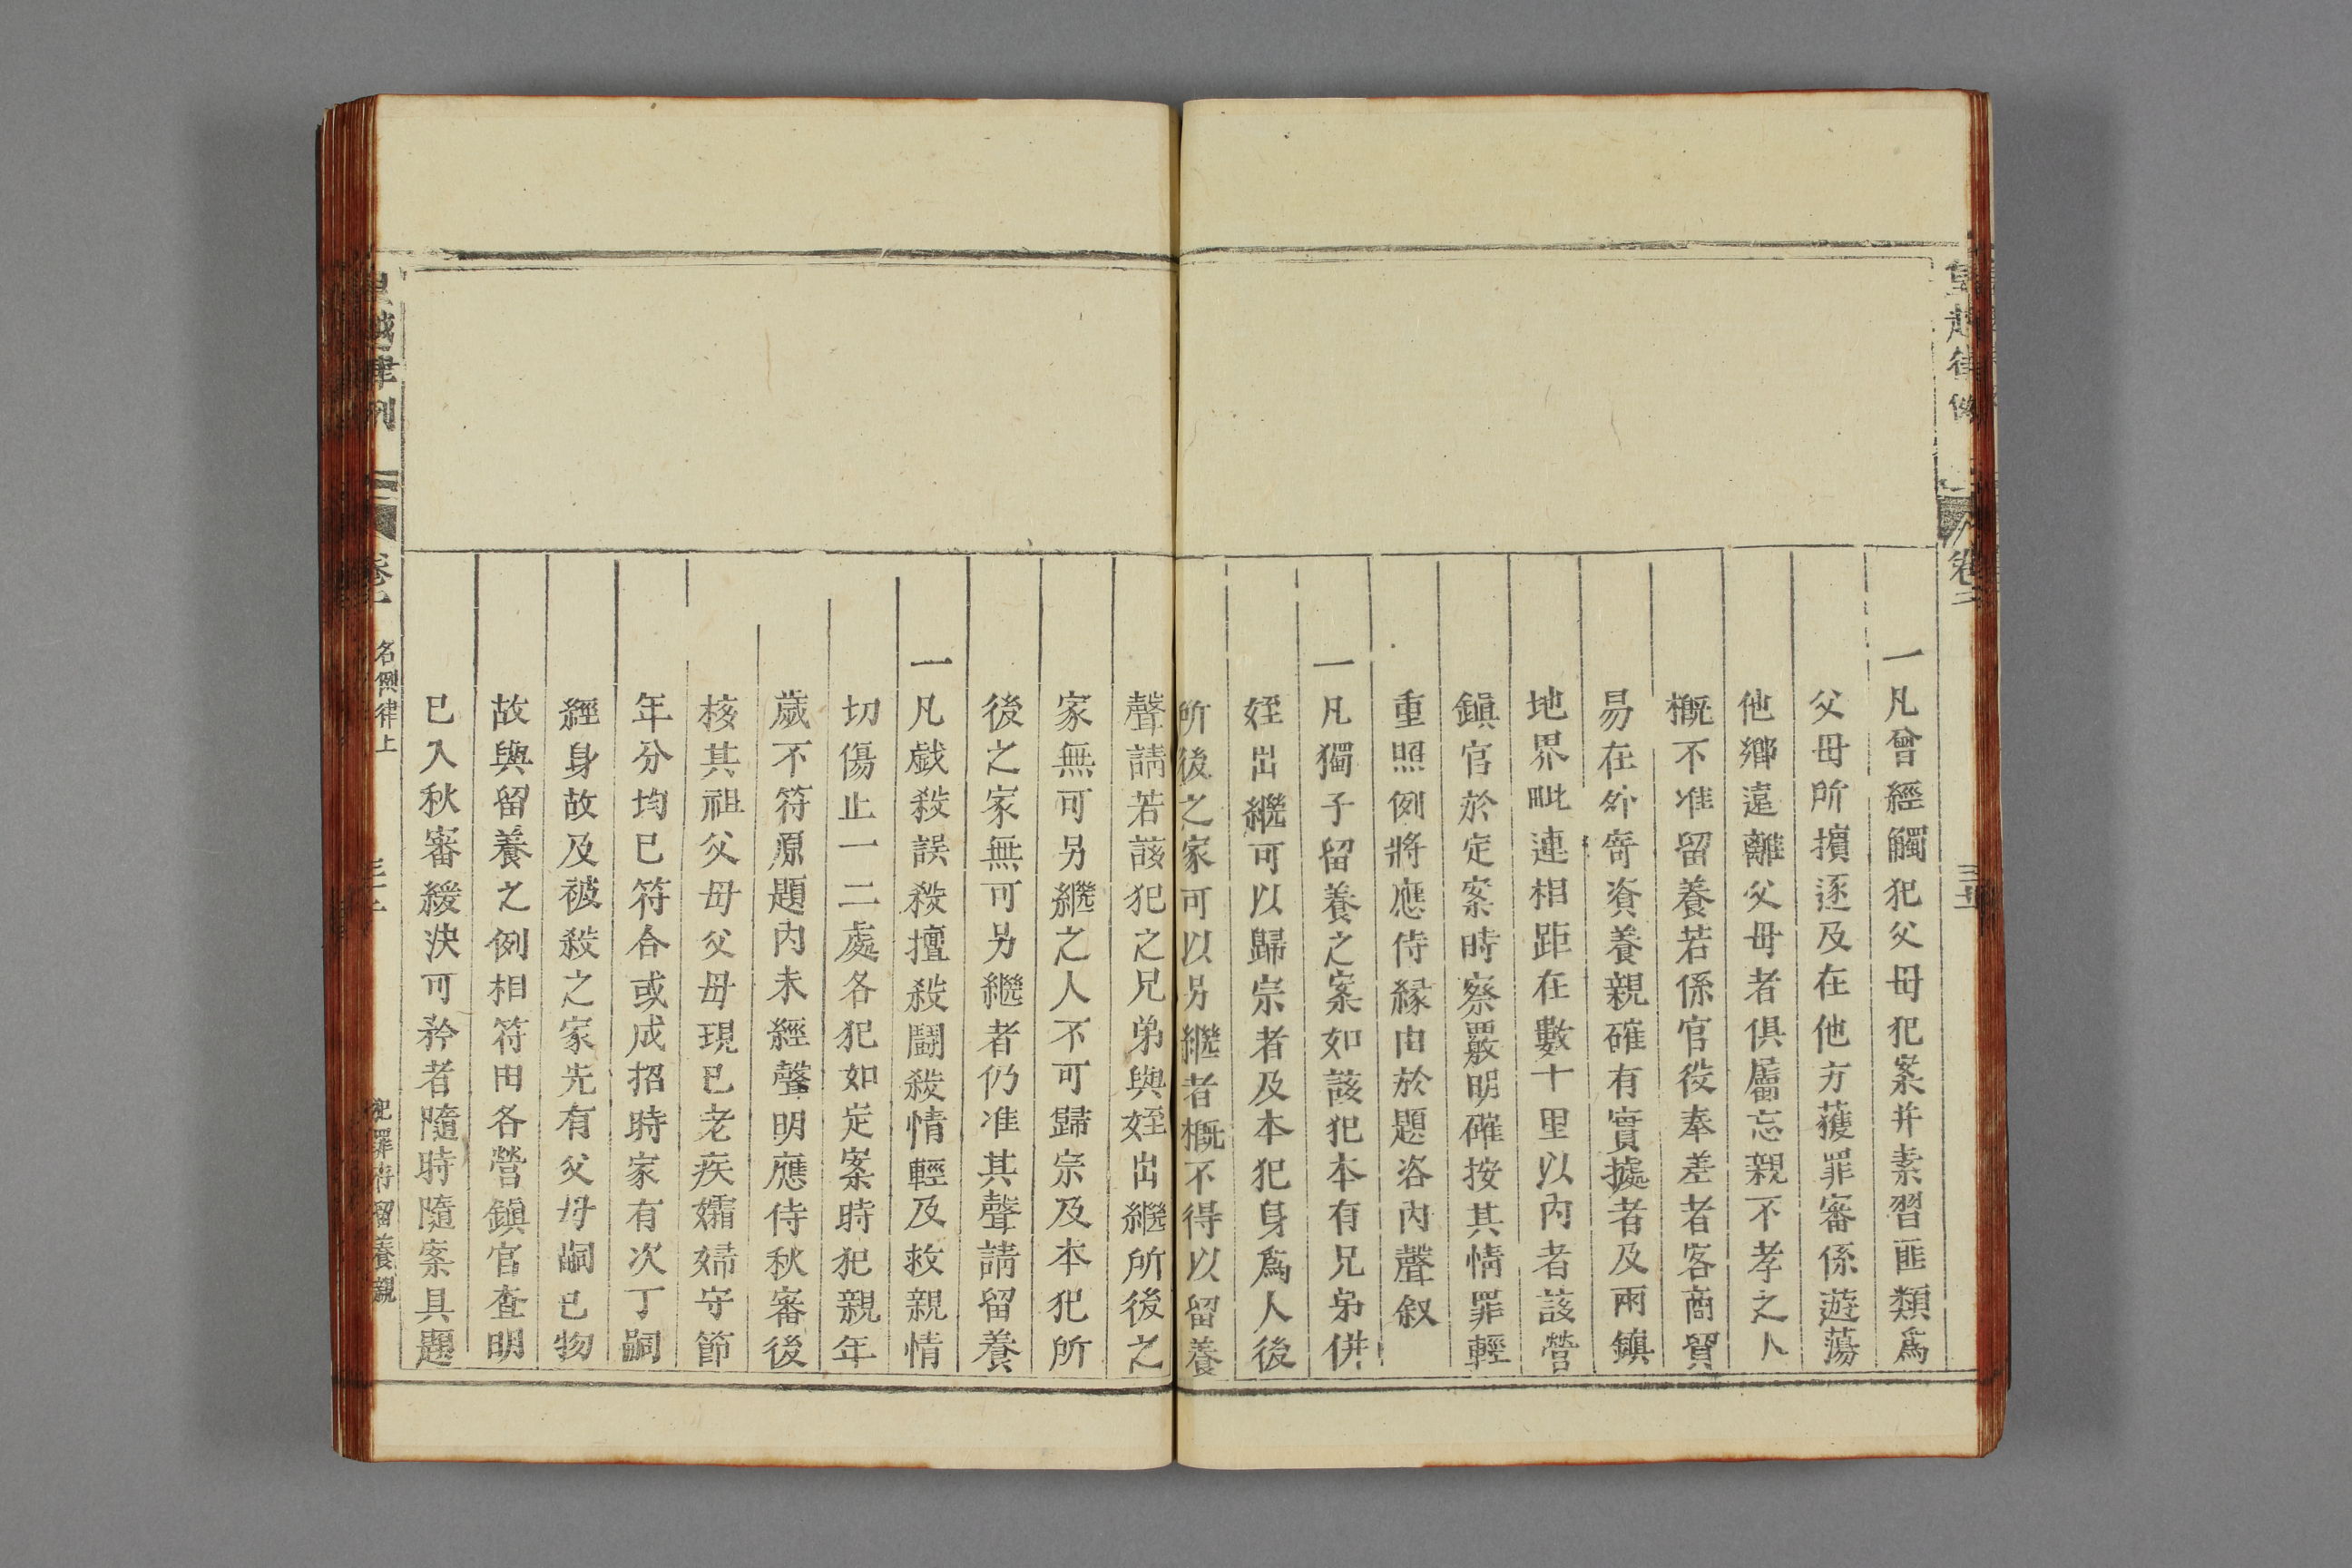 一凡曾經觸犯父母犯案并素習匪類爲
父母所擯逐及在他方獲罪審係遊蕩
他鄉遠離父母者俱屬忘親不孝之人
概不准留養若係官役奉差者客商貿
易在外寄資養親確有實據者及兩鎮
地界毗連相距在數十里以內者該營
鎮官於定案時察覈明確按其情罪輕
重照例將應侍緣由於題咨內聲叙
一凡獨子留養之案如該犯本有兄弟併
姪出繼可以歸宗者及本犯身爲人後
所後之家可以另繼者概不得以留養
聲請若該犯之兄弟與姪出繼所後之
家無可另繼之人不可歸宗及本犯所
後之家無可另繼者仍准其聲請留養
一凡戯殺誤殺擅殺鬪殺情輕及救親情
切傷止一二處各犯如定案時犯親年
歲不符原題內未經聲明應侍秋審後
核其祖父母父母現已老疾孀婦守節
年分均已符合或成招時家有次丁嗣
經身故及被殺之家先有父母嗣已物
故與留養之例相符由各營鎮官查明
已入秋審緩決可矜者隨時隨案具題
越律例
卷二
名例律上
犯罪存留養親